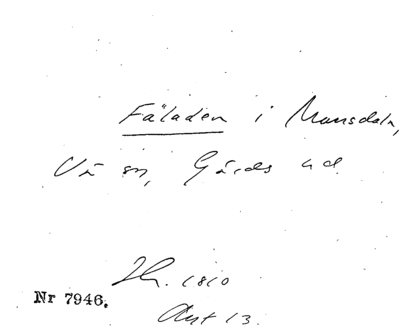 Fäladen i MaNsdala,
Vä sn, Gärds hd.
Jh. 1810
Nr 7946.
Avt 13.